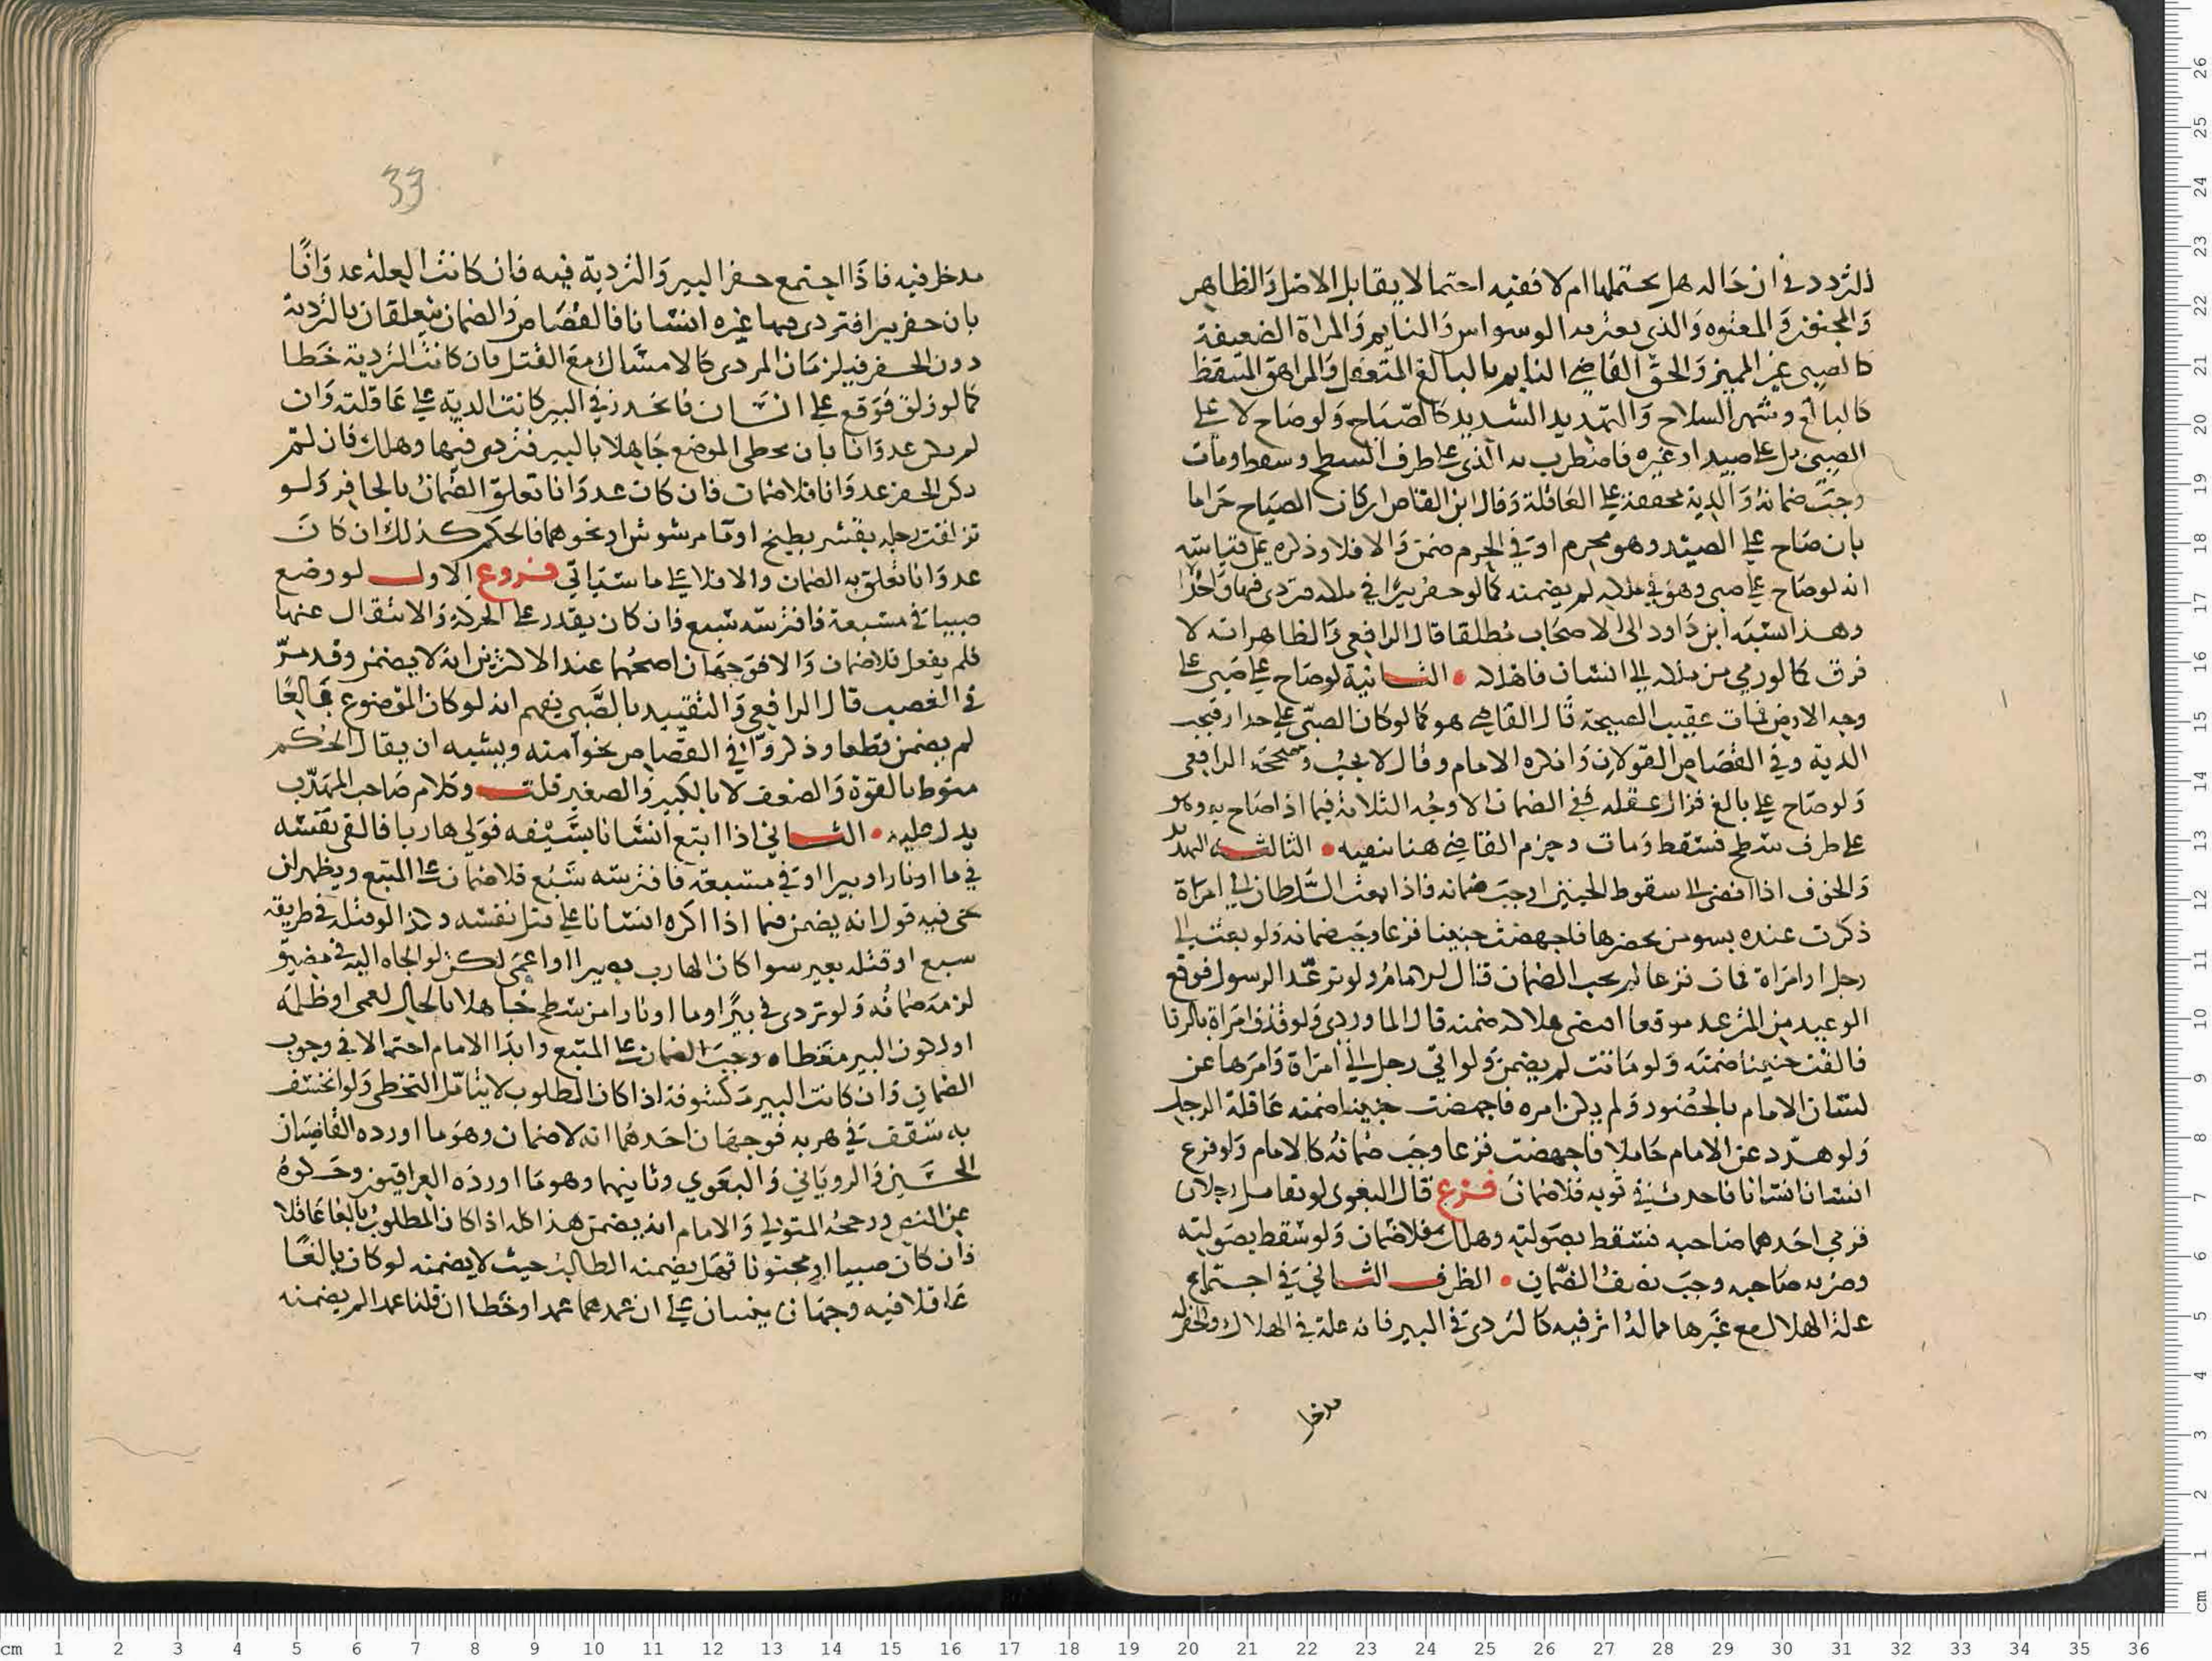 للتردد في ان حاله هل يحتملها ام لا ففيه احتمالا يقابل الاصل والظاهر
والمجنون والمعتوه والذي يعتريه الوسواس والنايم والمراة الضعيفة
كالصبي غير المميز والحق القاضي النايم بالبالغ المتغفل والمراهق المتيقظ
كالبالغ وشهر السلاح والتهديد الشديد كالصياح ولو صاح لا على
الصبي بل على صيد او غيره فاضطرب به الذي على طرف السطح وسقط ومات
وجب ضمانه والدية مخففة على العاقلة وقال ابن القاص ان كان الصياح حراما
بان صاح على الصيد وهو محرم او في الحرم ضمن والا فلا وذكره على قياسه
انه لو صاح على صبي وهو في ملكه لم يضمنه كما لو حفر بيرا في ملكه فتردى فيها واحد
وهذا نسبه ابن داود الى الاصحاب مطلقا قال الرافعي والظاهر انه لا
فرق كما لو رمي من ملكه الى انسان فاهلكه • الثانية لو صاح على صبي على
وجه الارض فمات عقيب الصيحة قال القاضي هو كما لو كان الصبي على جدار فيجب
الدية وفي القصاص القولان وانكره الامام وقال لا يجب وصححه الرافعي
ولو صاح على بالغ فزال عقله ففي الضمان الاوجه الثلاثة فيما اذا صاح به وهو
على طرف سطح فسقط ومات وجزم القاضي هنا بنفيه • الثالثة التهديد
والخوف اذا افضى الى سقوط الجنين اوجب ضمانه فاذا بعث السلطان الى امراة
ذكرت عنده بسو من يحضرها فاجهضت جنينا فزعا وجب ضمانه ولو بعث الى
رجل او امراة فمات فزعا لم يجب الضمان قال الامام ولو توعد الرسول فوقع
الوعيد من المرعد موقعا افضى هلاكه ضمنه قال الماوردي ولو قذف امراة بالزنا
فالقت جنينا ضمنه ولو ماتت لم يضمن ولو اتى رجل الى امراة وامرها عن
لسان الامام بالحضور ولم يكن امره فاجهضت جنينا ضمنه عاقلة الرجل
ولو هدد عن الامام حاملا فاجهضت فزعا وجب ضمانه كالامام ولو فزع
انسان انسانا فاحدث في ثوبه فلا ضمان فرع قال البغوي لو تقابل رجلان
فرمي احدهما صاحبه فسقط بصولته وهلك فلا ضمان ولو سقط بصولته
وضربه صاحبه وجب نصف الضمان • الطرف الثاني في اجتماع
علة الهلاك مع غيرها مما له اثر فيه كالتردي في البير فانه علة في الهلاك والحفر له
مدخل
33
مدخل فيه فاذا اجتمع حفر البير والتردية فيه فان كانت العلة عدوانا
بان حفر بيرا فتردى فيها غيره انسانا فالقصاص والضمان يتعلقان بالتردية
دون الحفر فيلزمان المردي كالامساك مع القتل وان كانت التردية خطا
كما لو زلق فوقع على انسان فانحدر في البير كانت الدية على عاقلته وان
لم يكن عدوانا بان يخطى الموضع جاهلا بالبير فتردى فيها وهلك فان لم
يكن الحفر عدوانا فلا ضمان فان كان عدوانا تعلق الضمان بالحافر ولو
تزلقت رجله بقشر بطيخ او ما مرشوش او نحوهما فالحكم كذلك ان كان
عدوانا تعلق به الضمان والا فلا على ما سياتي فروع الاول لو وضع
صبيا في مسبعة فافترسه سبع فان كان يقدر على الحركة والانتقال عنها
فلم يفعل فلا ضمان والا فوجهان اصحهما عند الاكثرين انه لا يضمن وقد مر
في الغصب قال الرافعي والتقييد بالصبي يفهم انه لو كان الموضوع بالغا
لم يضمن قطعا وذكروا في القصاص نحوا منه ويشبه ان يقال الحكم
منوط بالقوة والضعف لا بالكبير والصغير قلت وكلام صاحب المهذب
يدل عليه • الثاني اذا اتبع انسانا بسيفه فولي هاربا فالقى نفسه
في ما او نار او بير او في مسبعة فافترسه سبع فلا ضمان على المتبع ويظهر ان
يجي فيه قول انه يضمن فيما اذا اكره انسانا على قتل نفسه وكذا لو قتله في طريقه
سبع او قتله بعير سوا كان الهارب بصيرا او اعمى لكن لو الجاه اليه في مضيق
لزمه ضمانه ولو تردى في بير او ما او نار او من سطح جاهلا بالحال لعمى او ظلمة
او لكون البير مغطاه وجب الضمان على المتبع وابدا الامام احتمالا في وجوب
الضمان وان كانت البير مكشوفة اذا كان المطلوب لا يتامل التخطي ولو انخسف
به سقف في هربه فوجهان احدهما انه لا ضمان وهو ما اورده القاضيان
الحسين والروياني والبغوي وثانيهما وهو ما اورده العراقيون وحكوه
عن النص ورجحه المتولي والامام انه يضمن هذا كله اذا كان المطلوب بالغا عاقلا
فان كان صبيا او مجنونا فهل يضمنه الطالب حيث لا يضمنه لو كان بالغا
عاقلا فيه وجهان يبنيان على ان عمدهما عمدا او خطا ان قلنا عمدا لم يضمنه